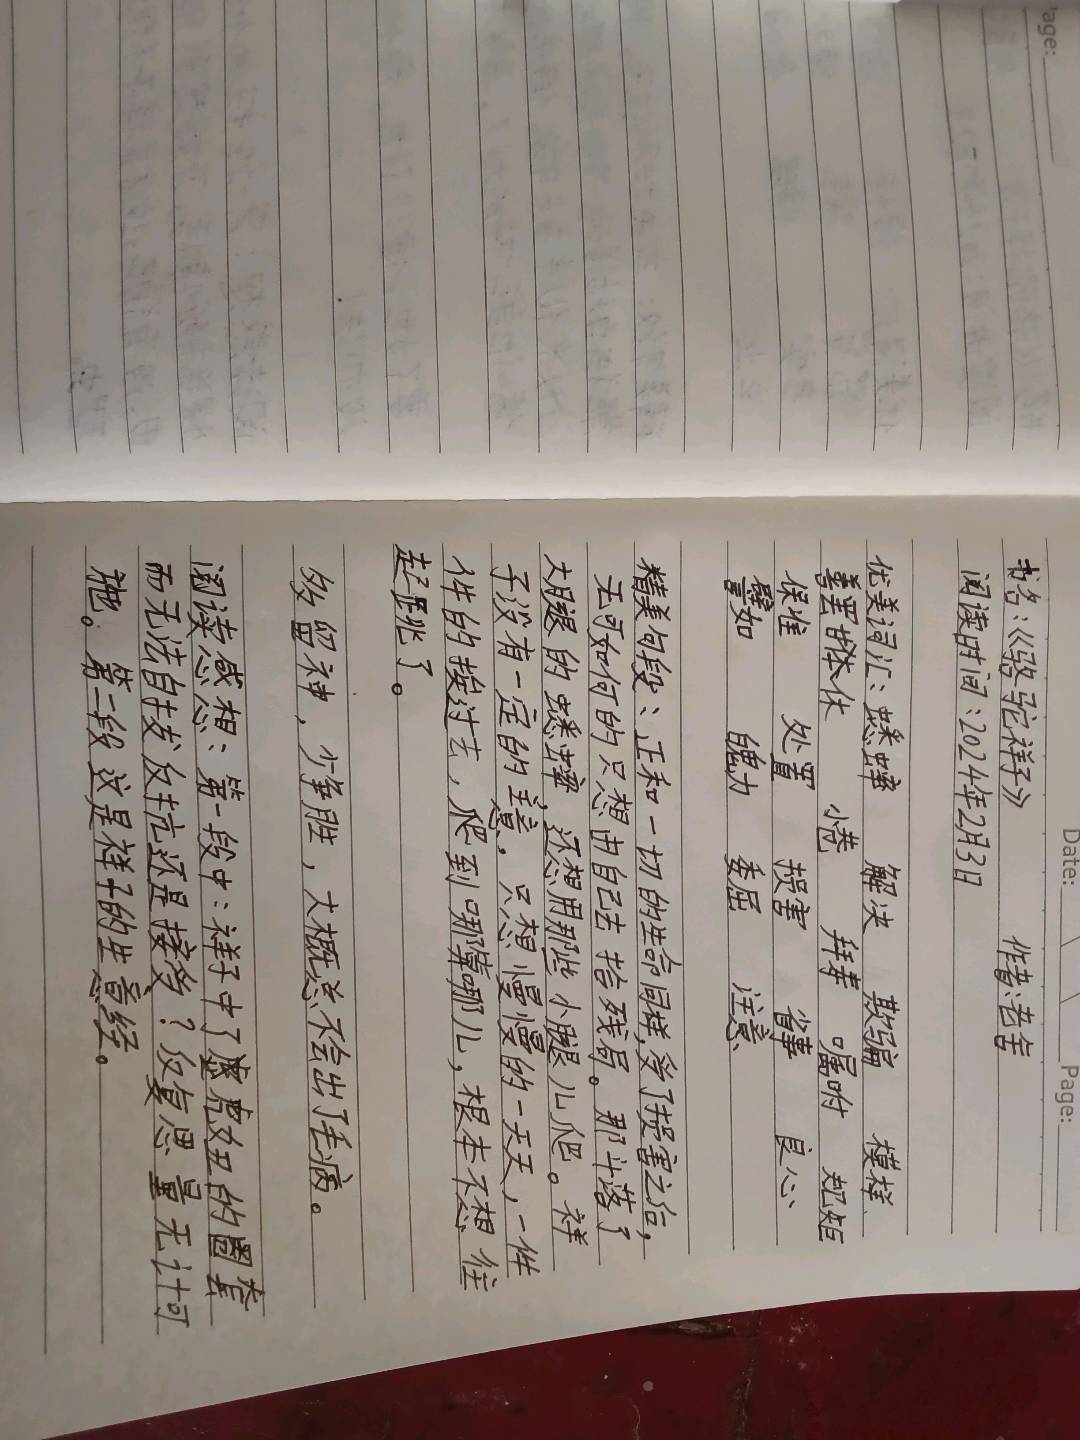 Date: Page:
书名:《骆驼祥子》 作者:老舍
阅读时间:2024年2月3日
优美词汇:蟋蟀 解决 欺骗 模样
善罢甘休 小巷 拜寿 嘱咐 规矩
保准 处置 损害 省事 良心
譬如 魄力 委屈 注意
精美句段:正和一切的生命同样,受了损害之后,
无可如何的只想由自己去 拾残局。那斗落了
大腿的蟋蟀,还想用那些小腿儿爬。祥
子没有一定的主意,只想慢慢的一天天,一件
件的挨过去,爬到哪算哪儿,根本不想往
起跳了。
多留神,少争胜,大概总不会出了毛病。
阅读感想:第一段中:祥子中了虎妞的圈套
而无法自拔反抗还是接受?反复思量无计可
施。第二段这是祥子的生意经。
age: